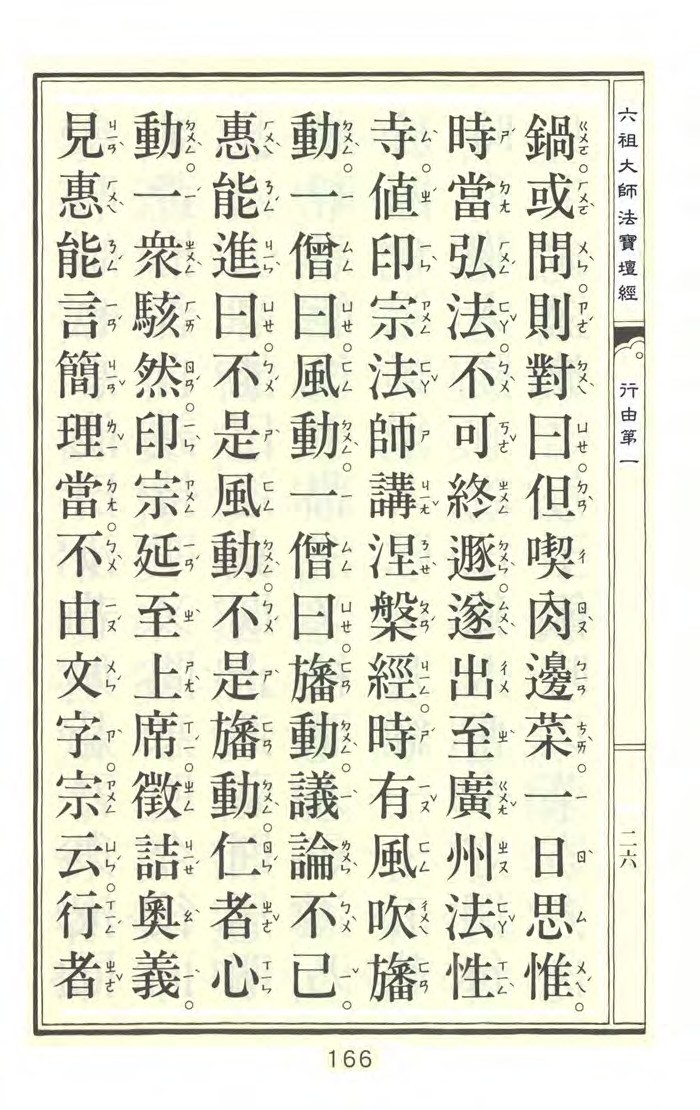 六祖大師法寶壇經 行由第一 二六
鍋。或問。則對曰。但喫肉邊菜。一日思惟。
時當弘法。不可終遯。遂出至廣州法性
寺。值印宗法師講涅槃經。時有風吹旛
動。一僧曰。風動。一僧曰。旛動。議論不已。
惠能進曰。不是風動。不是旛動。仁者心
動。一衆駭然。印宗延至上席。徵詰奧義。
見惠能言簡理當。不由文字。宗云。行者
166